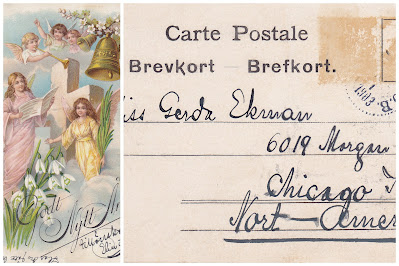 Gott
Nytt
Carte Postale
Brevkort — Brefkort.
iss Gerda Ekman
6019 Morgan
Chicago
Nort - Amer
1903